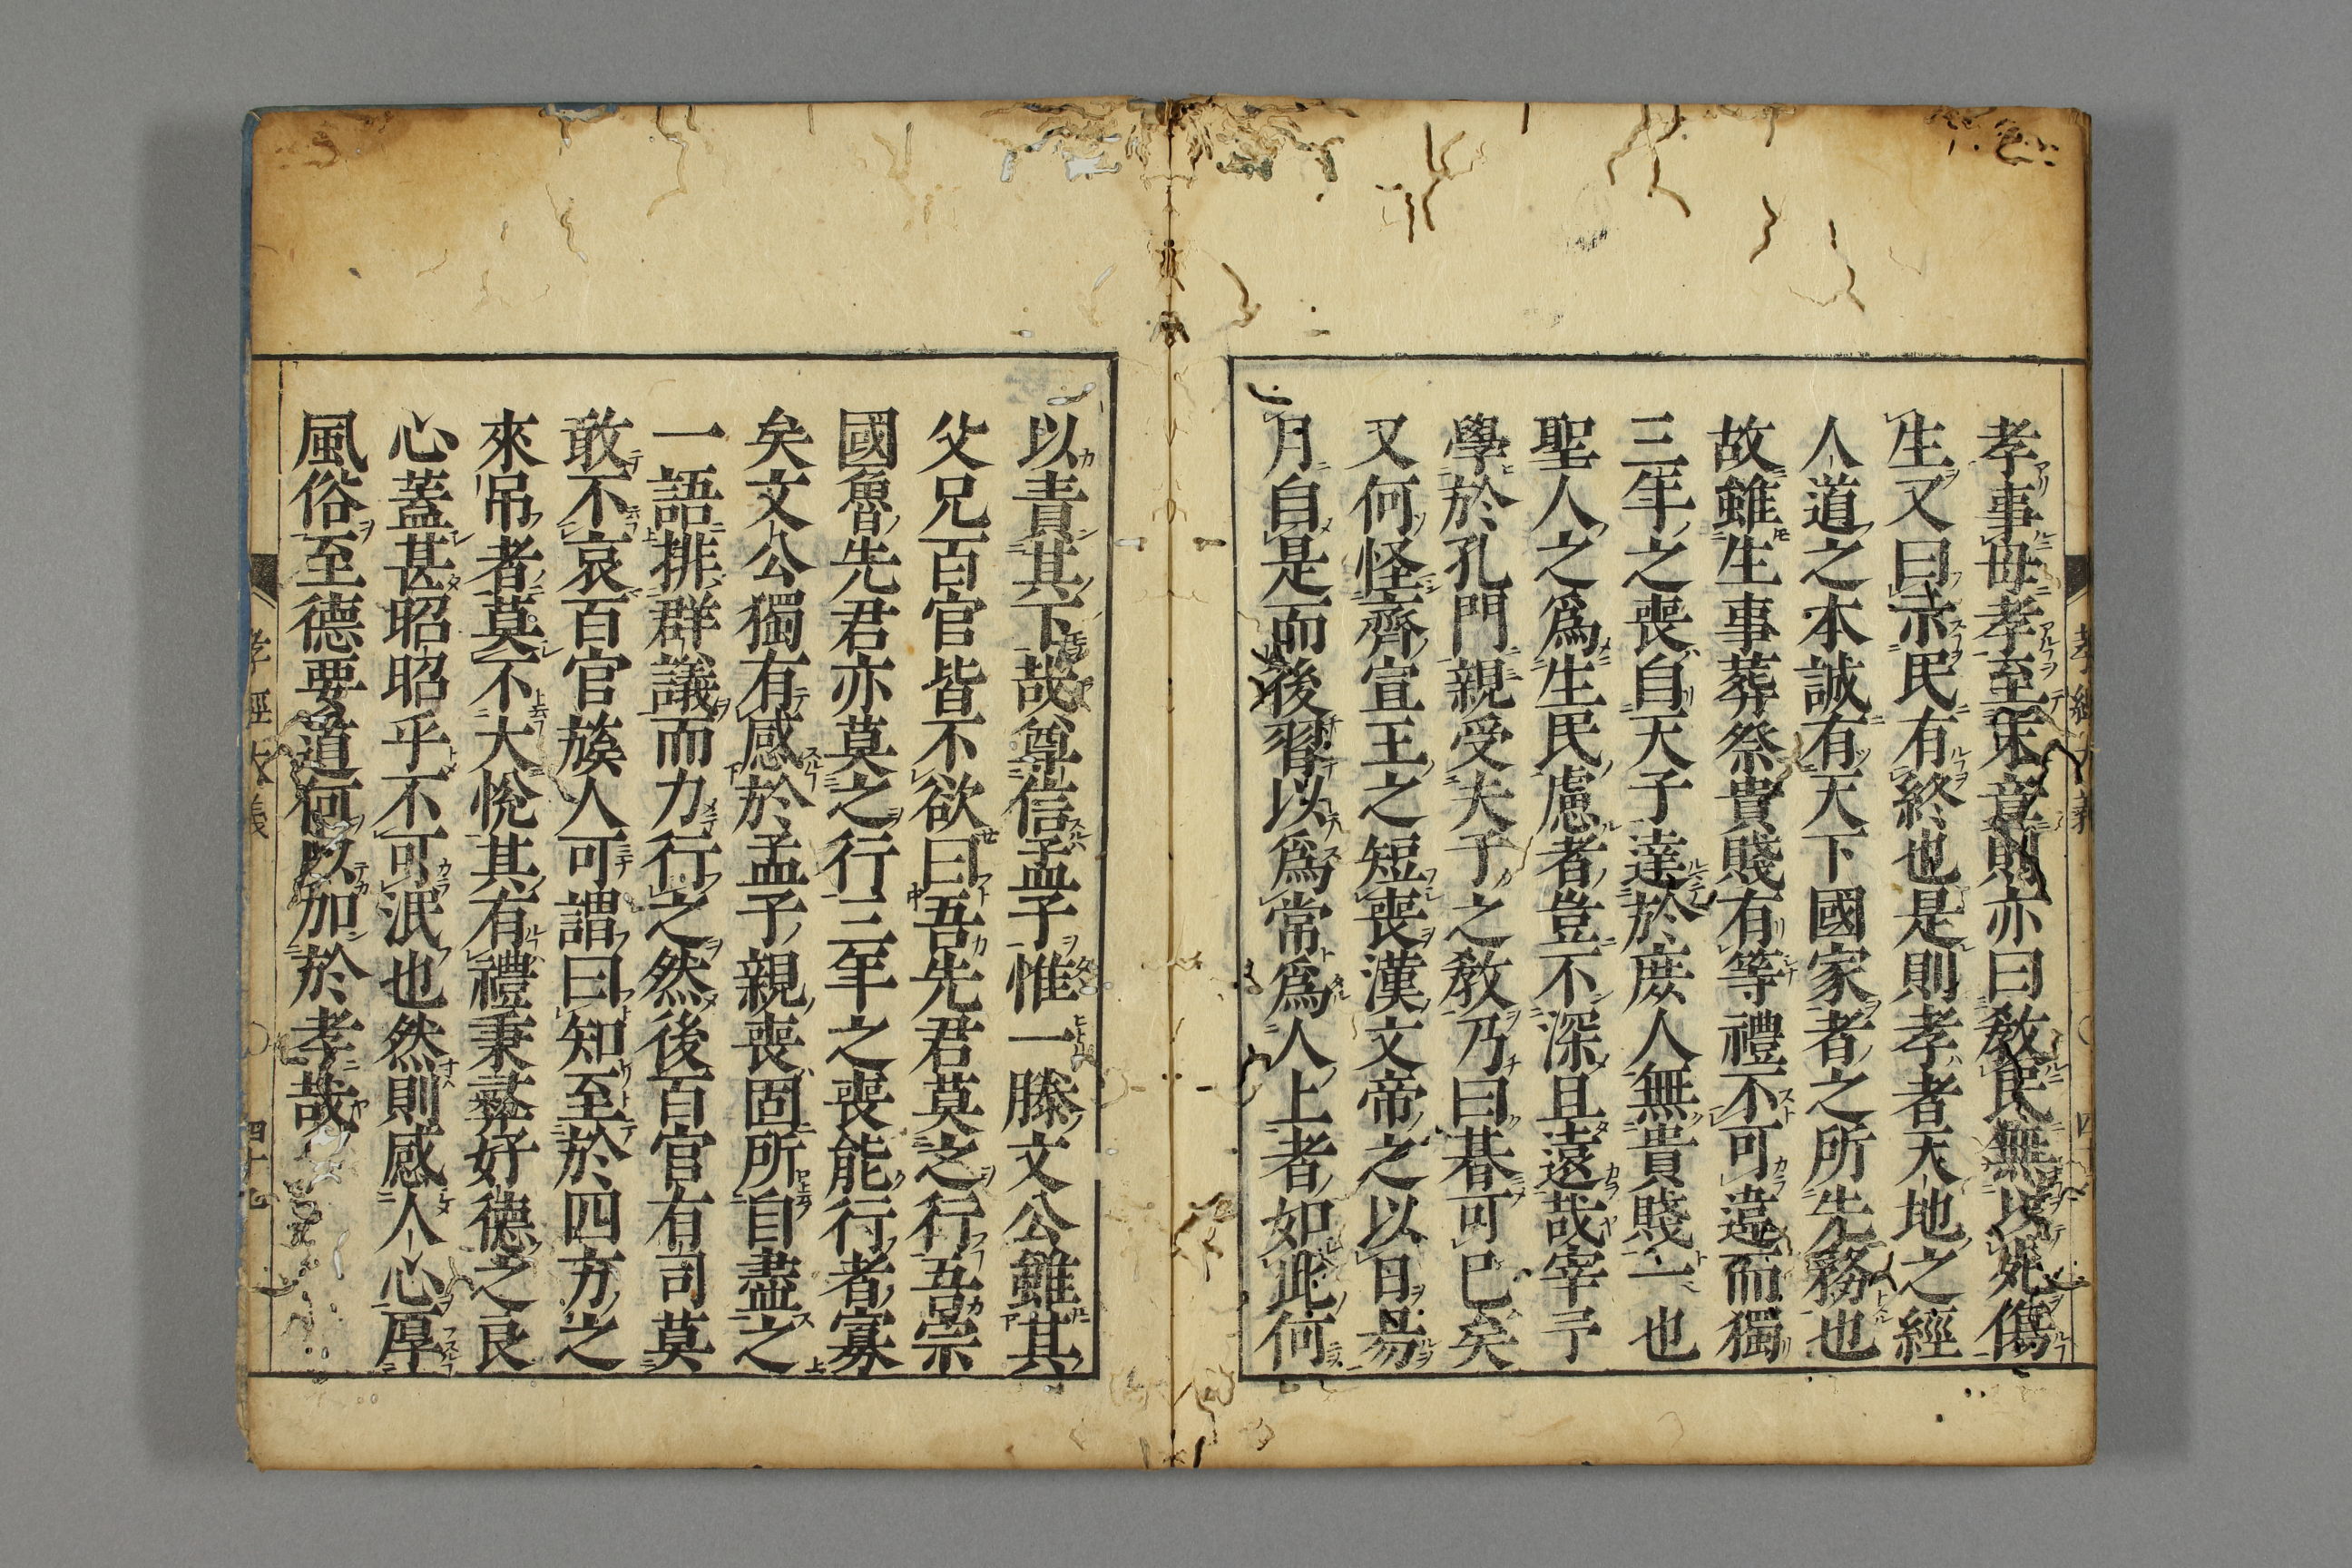 孝事母孝至末章則亦曰教民無以死傷
生又曰示民有終也是則孝者天地之經
人道之本誠有天下國家者之所先務也
故雖生事葬祭貴賤有等禮不可違而獨
三年之喪自天子達於庶人無貴賤一也
聖人之爲生民慮者豈不深且遠哉宰予
學於孔門親受夫子之教乃曰朞可已矣
又何怪齊宣王之短喪漢文帝之以日易
月自是而後習以爲常爲人上者如此何
以責其下哉尊信孟子惟一滕文公雖其
父兄百官皆不欲曰吾先君莫之行吾宗
國魯先君亦莫之行三年之喪能行者寡
矣文公獨有感於孟子親喪固所自盡之
一語排群議而力行之然後百官有司莫
敢不哀百官族人可謂曰知至於四方之
來吊者莫不大悅其有禮秉彛好德之良
心蓋甚昭昭乎不可泯也然則感人心厚
風俗至德要道何以加於孝哉
孝經大義
四十九